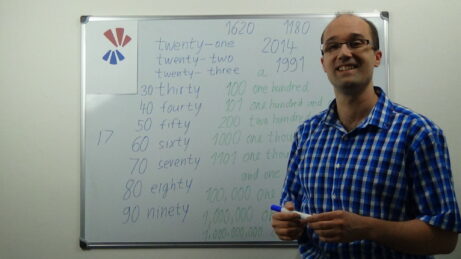 1620 1180
twenty-one 2014
twenty-two
twenty-three a 1991
30 thirty 100 one hundred
40 fourty 101 one hundred and
50 fifty 200 two hundred
17 60 sixty 1000 one thou
70 seventy 1101 one thous
and one
80 eighty 100,000 one
90 ninety 1,000,000 one
1.000.000.000